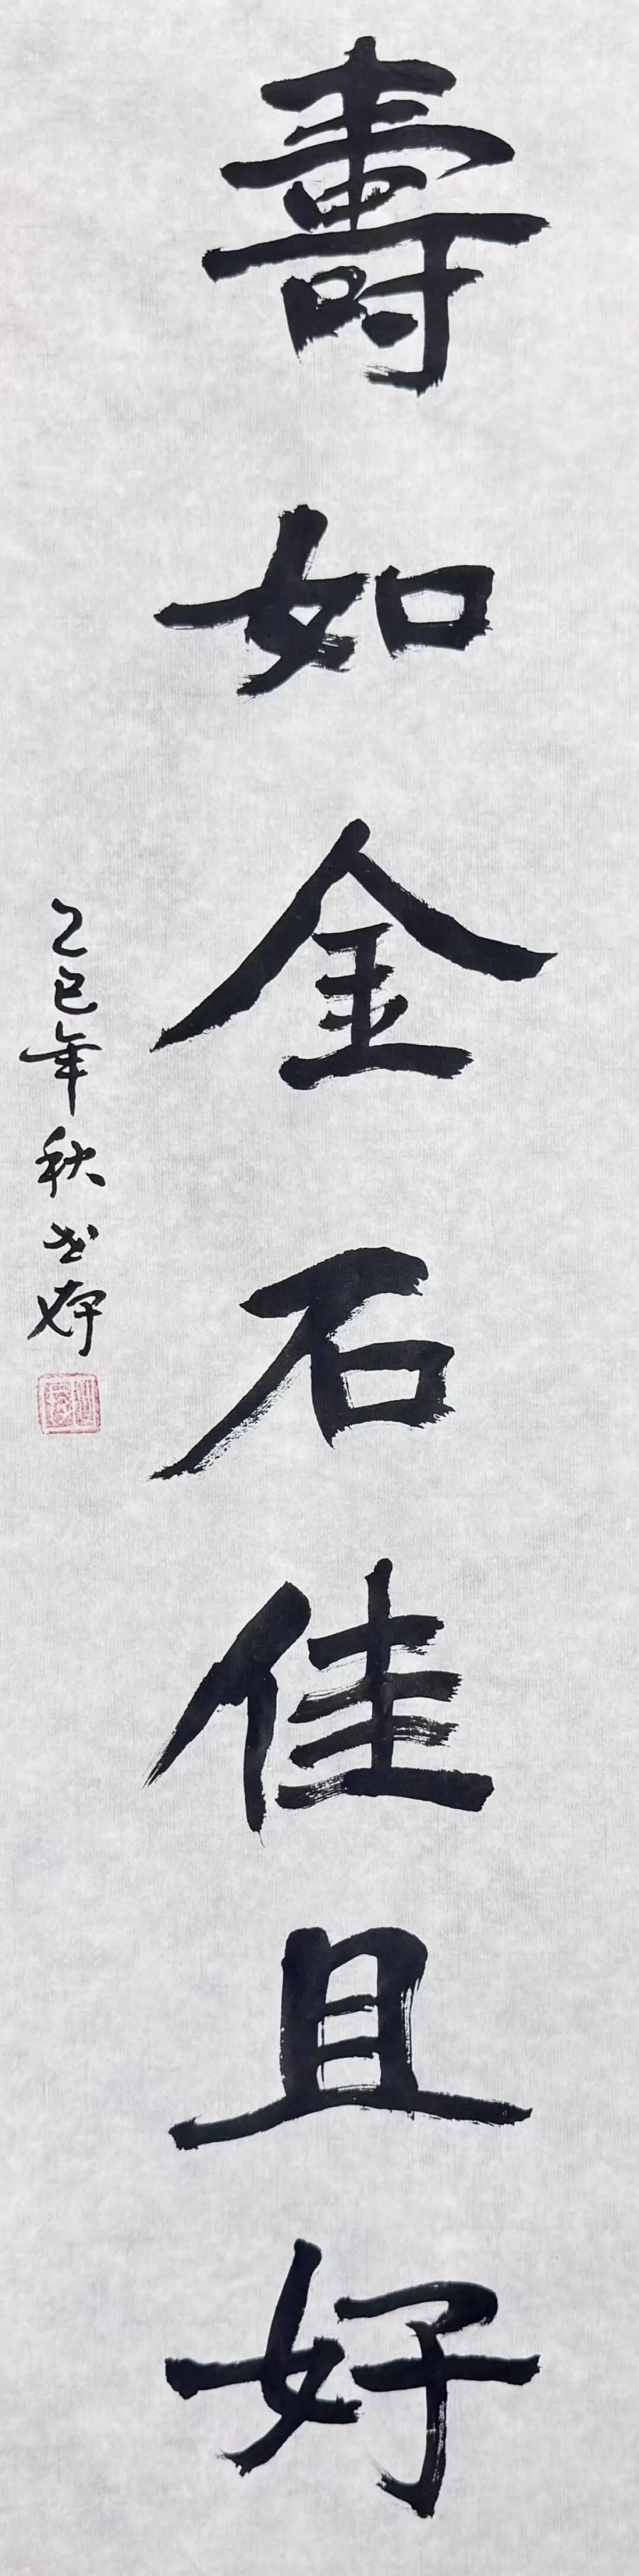 壽如金石佳且好
乙巳年秋